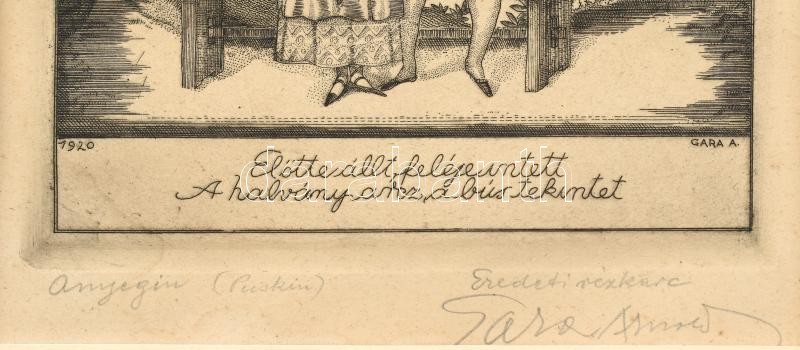 1920
GARA A.
Előtte állt, feléje intett
A halvány arc, a bús tekintet
Anyegin (Puskin)
Eredeti rézkarc
Gara Arnold